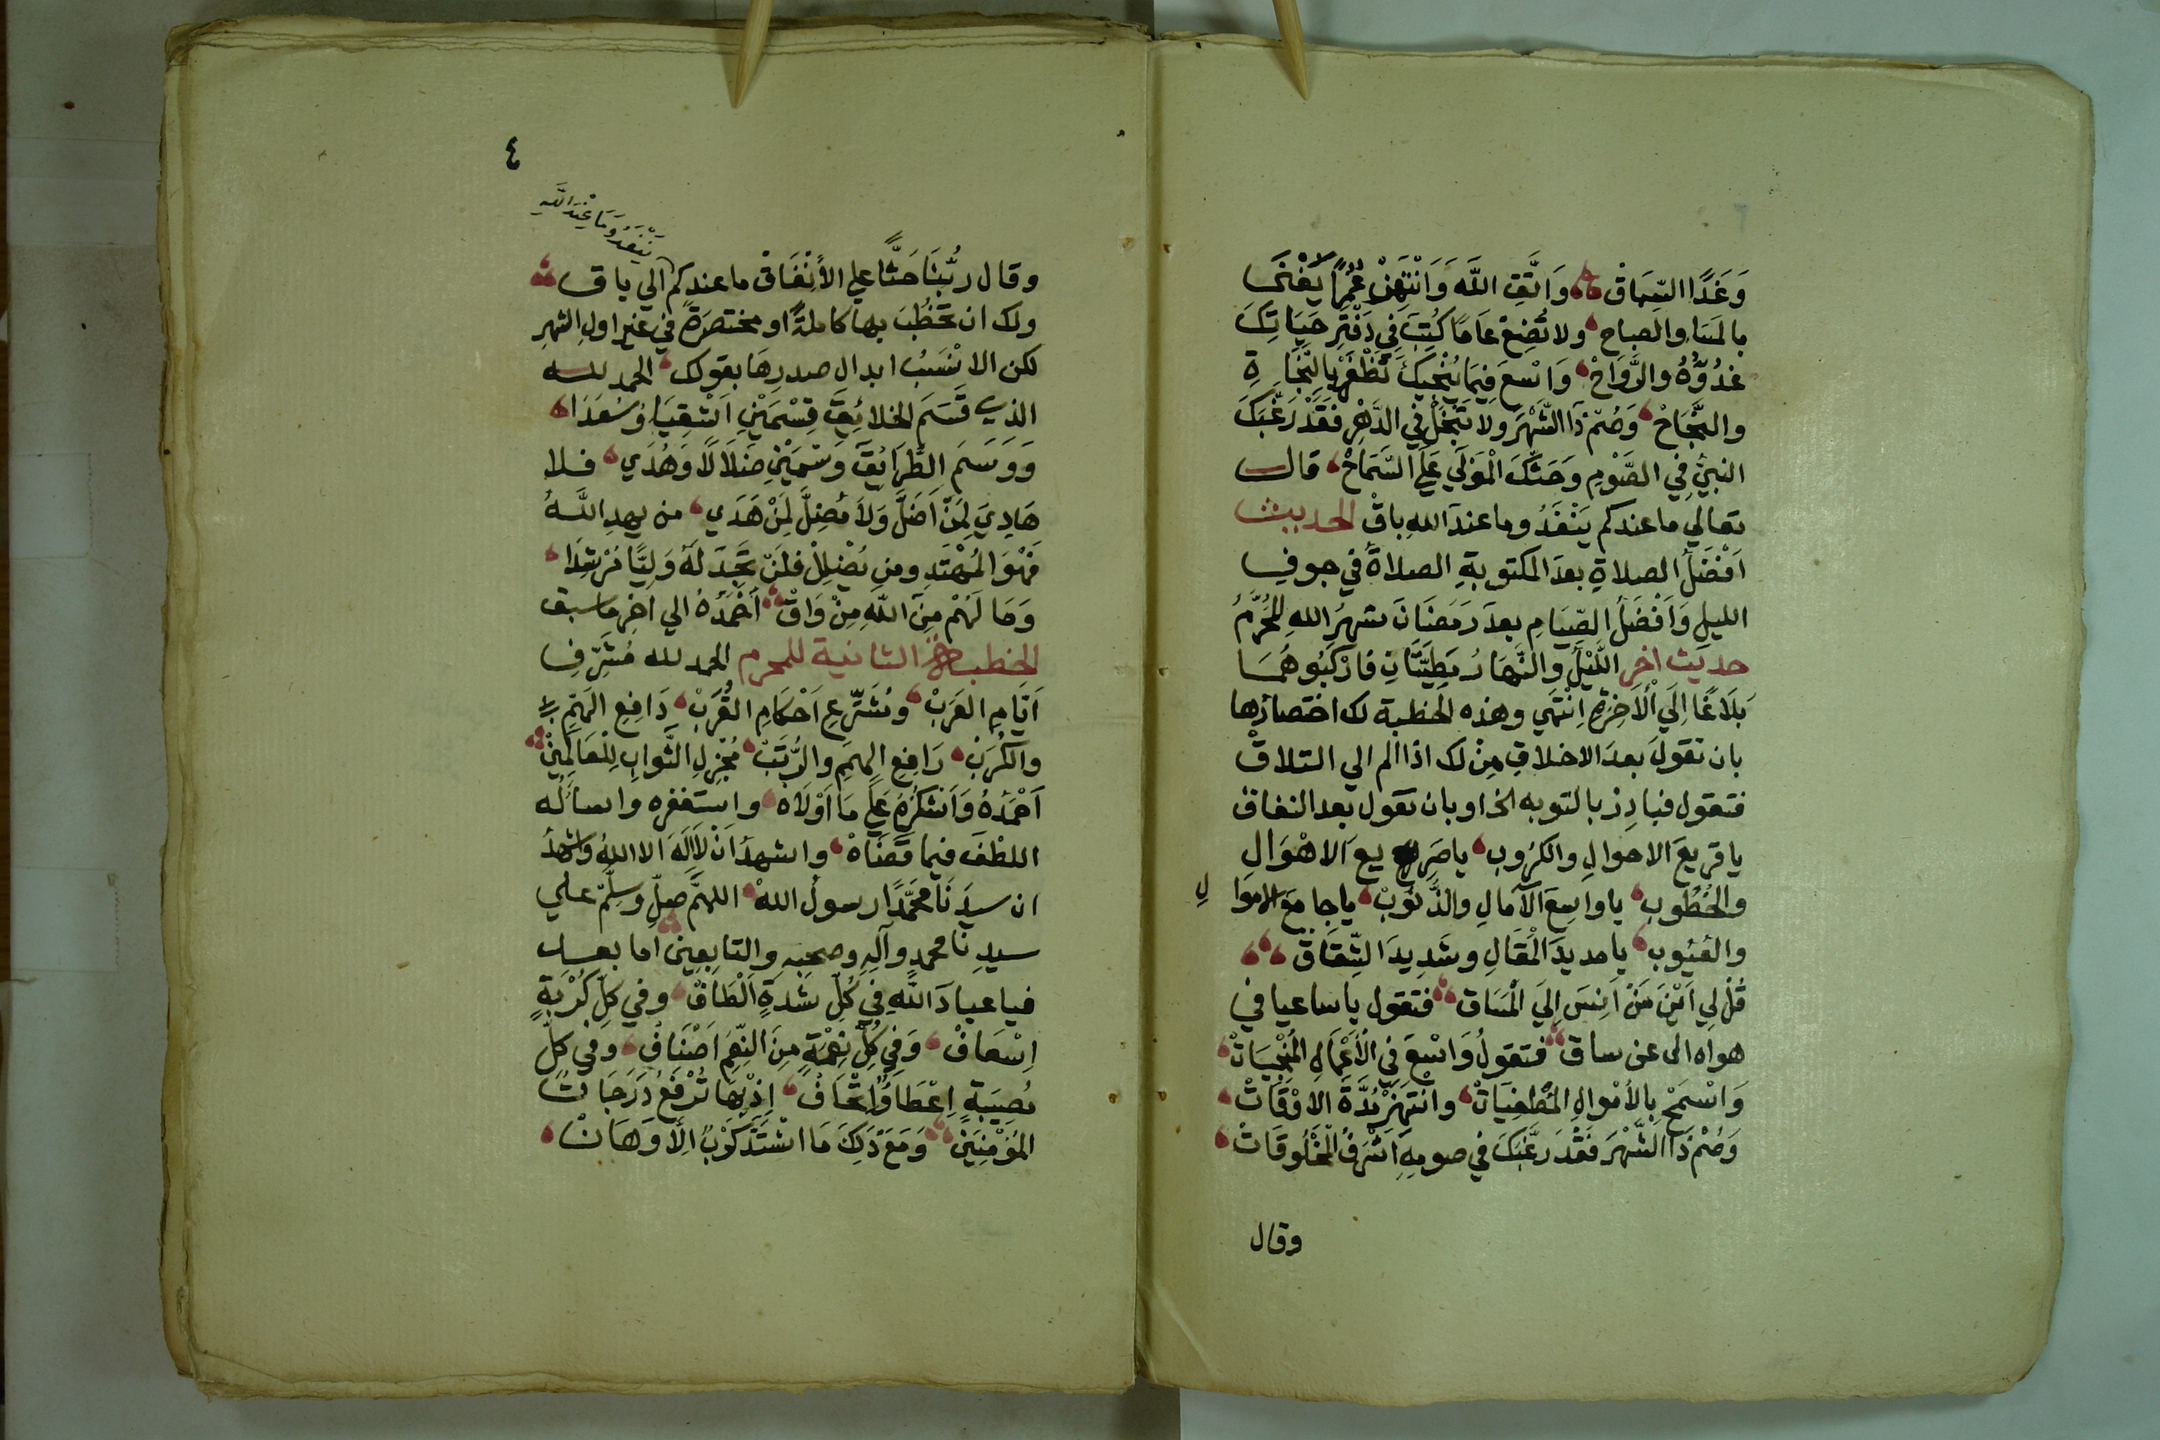 وَغَدًا السِّبَاقْ وَاتَّقِ اللَّهَ وَانْتَهِزْ عُمُرًا يَفْنَى
بالمسَاءِ والصباح ولا تُضِعْ عَامًا كُتِبَ فِي دَفْتَرِ حَيَاتِكَ
غُدُوُّهُ والرَّوَاحْ وَاسْعَ فِيمَا يُنْجِيكَ تَظْفَرْ بِالنَّجَاةِ
والنَّجَاحْ وَصُمْ ذَا الشَّهْرَ ولا تَبْخَلْ فِي الدَّهْرِ فَقَدْ رَغَّبَكَ
النبيُّ فِي الصَّوْمِ وَحَثَّكَ الْمَوْلَي عَلَي السَّمَاحْ قال
تعالي ما عندكم يَنْفَدُ وما عندَ اللهِ باقْ الحديث
اَفْضَلُ الصلاةِ بعدَ المكتوبةِ الصلاةُ في جوفِ
الليلِ وَاَفْضَلُ الصِّيَامِ بعدَ رَمَضَانَ شهرُ اللهِ المُحَرَّمُ
حديث اخر اللَّيْلُ والنَّهَارُ مَطِيَّتَانِ فَارْكَبُوهُمَا
بَلَاغًا اِلَي الْاَخِرَةِ اِنْتَهَي وهذه الخطبة لك اختصارُها
بان تقولَ بعدَ الاخلاقِ مِنْ لك اذا الم الي التلاقْ
فتقول فبادِرْ بالتوبه الخ او بان تقول بعد النفاق
يا قريعَ الاحوالِ والكرُوبِ يا صَرِيعَ الاهْوَالِ
والخُطُوبِ يا واسِعَ الآمالِ والذُّنُوبْ يا جامعَ الاموالِ
والعُيُوبِ يا مديدَ الْمَقَالِ وشَدِيدَ الشِّقَاقْ
قُلْ لِي اَيْنَ مَنْ اَنِسَ اِلَيَ الْمَسَاق فتقول يا ساعيا في
هواه الى عن ساق فتقولُ وَاسْعَ فِي الْاَعْمَالِ الْمُنْجِيَاتْ
وَاسْمَحْ بِالاَمْوَالِ الْمُطْغِيَاتْ وانْتَهِزْ مُدَّةَ الاوْقَاتْ
وَصُمْ ذَا الشَّهْرَ فَقَدْ رَغَّبَكَ في صومِهِ اَشْرَفُ الْمَخْلُوقَاتْ
وقال
٤
يَنْفَدُ وَمَا عِنْدَ اللَّهِ
وقال ربُّنَا حَثًّا علي الاَنْفَاقْ ما عندكم الي باق
ولك ان تخطُبَ بها كاملةً او مختصرَةً في غير اولِ الشهرِ
لكن الانْسَبُ ابدال صدرِهَا بقولك الحمد لله
الذي قَسَمَ الخلائِقَ قِسْمَيْنِ اَشْقِيَا وَسُعَدَا
وَوَسَمَ الطَّرَائِقَ وَسْمَيْنِ ضَلَالًا وَهُدَي فلا
هَادِيَ لِمَنْ اَضَلَّ وَلَا مُضِلَّ لِمَنْ هَدَي من يهدِ اللَّهُ
فَهُوَ المُهْتَدِ ومن يُضْلِلْ فلَنْ تَجِدَ لَهُ وَلِيًّا مُرْشِدَا
وَمَا لَهُمْ مِنَ اللَّهِ مِنْ وَاقْ اَحْمَدُهُ الي اخر ما سبق
الخطبة الثانية للمحرم الحمد لله مُشَرِّفِ
اَيَّامِ العَرَبْ ومُشَرِّعِ اَحْكَامِ القُرَبْ دَافِعِ الهَمِّ
والكُرَبْ رَافِعِ الهِمَمِ والرُّتَبْ مُجْزِلِ الثَّوَابِ لِلْعَالَمِينْ
اَحْمَدُهُ وَاَشْكُرُهُ عَلَي مَا اَوْلَاه واستغفره واسألُه
اللطْفَ فيما قَضَاهْ واشهدُ اَنْ لَا اِلَهَ الا اللهُ واشهدُ
ان سيدَنَا محمَّدًا رسولُ اللهْ اللهمَّ صلِّ وسلِّمْ علي
سيدِنَا محمدٍ وآلِهِ وصحبِهِ والتابِعِينْ اما بعد
فيا عبادَ اللَّهِ فِي كُلِّ شِدةٍ اَلْطَافْ وفي كلِّ كُرْبَةٍ
اِسْعَافْ وَفِي كُلِّ نِعْمَةٍ مِنَ النِّعَمِ اَصْنَافْ وفي كلِّ
مُصِيبَةٍ اِعْطَا وَاِتْحَافْ اِذْ بِهَا تُرْفَعُ دَرَجَاتُ
المُؤْمِنِينْ وَمَعَ ذَلِكَ مَا اشْتَدَّ كَرْبٌ اِلَّا وَهَانْ